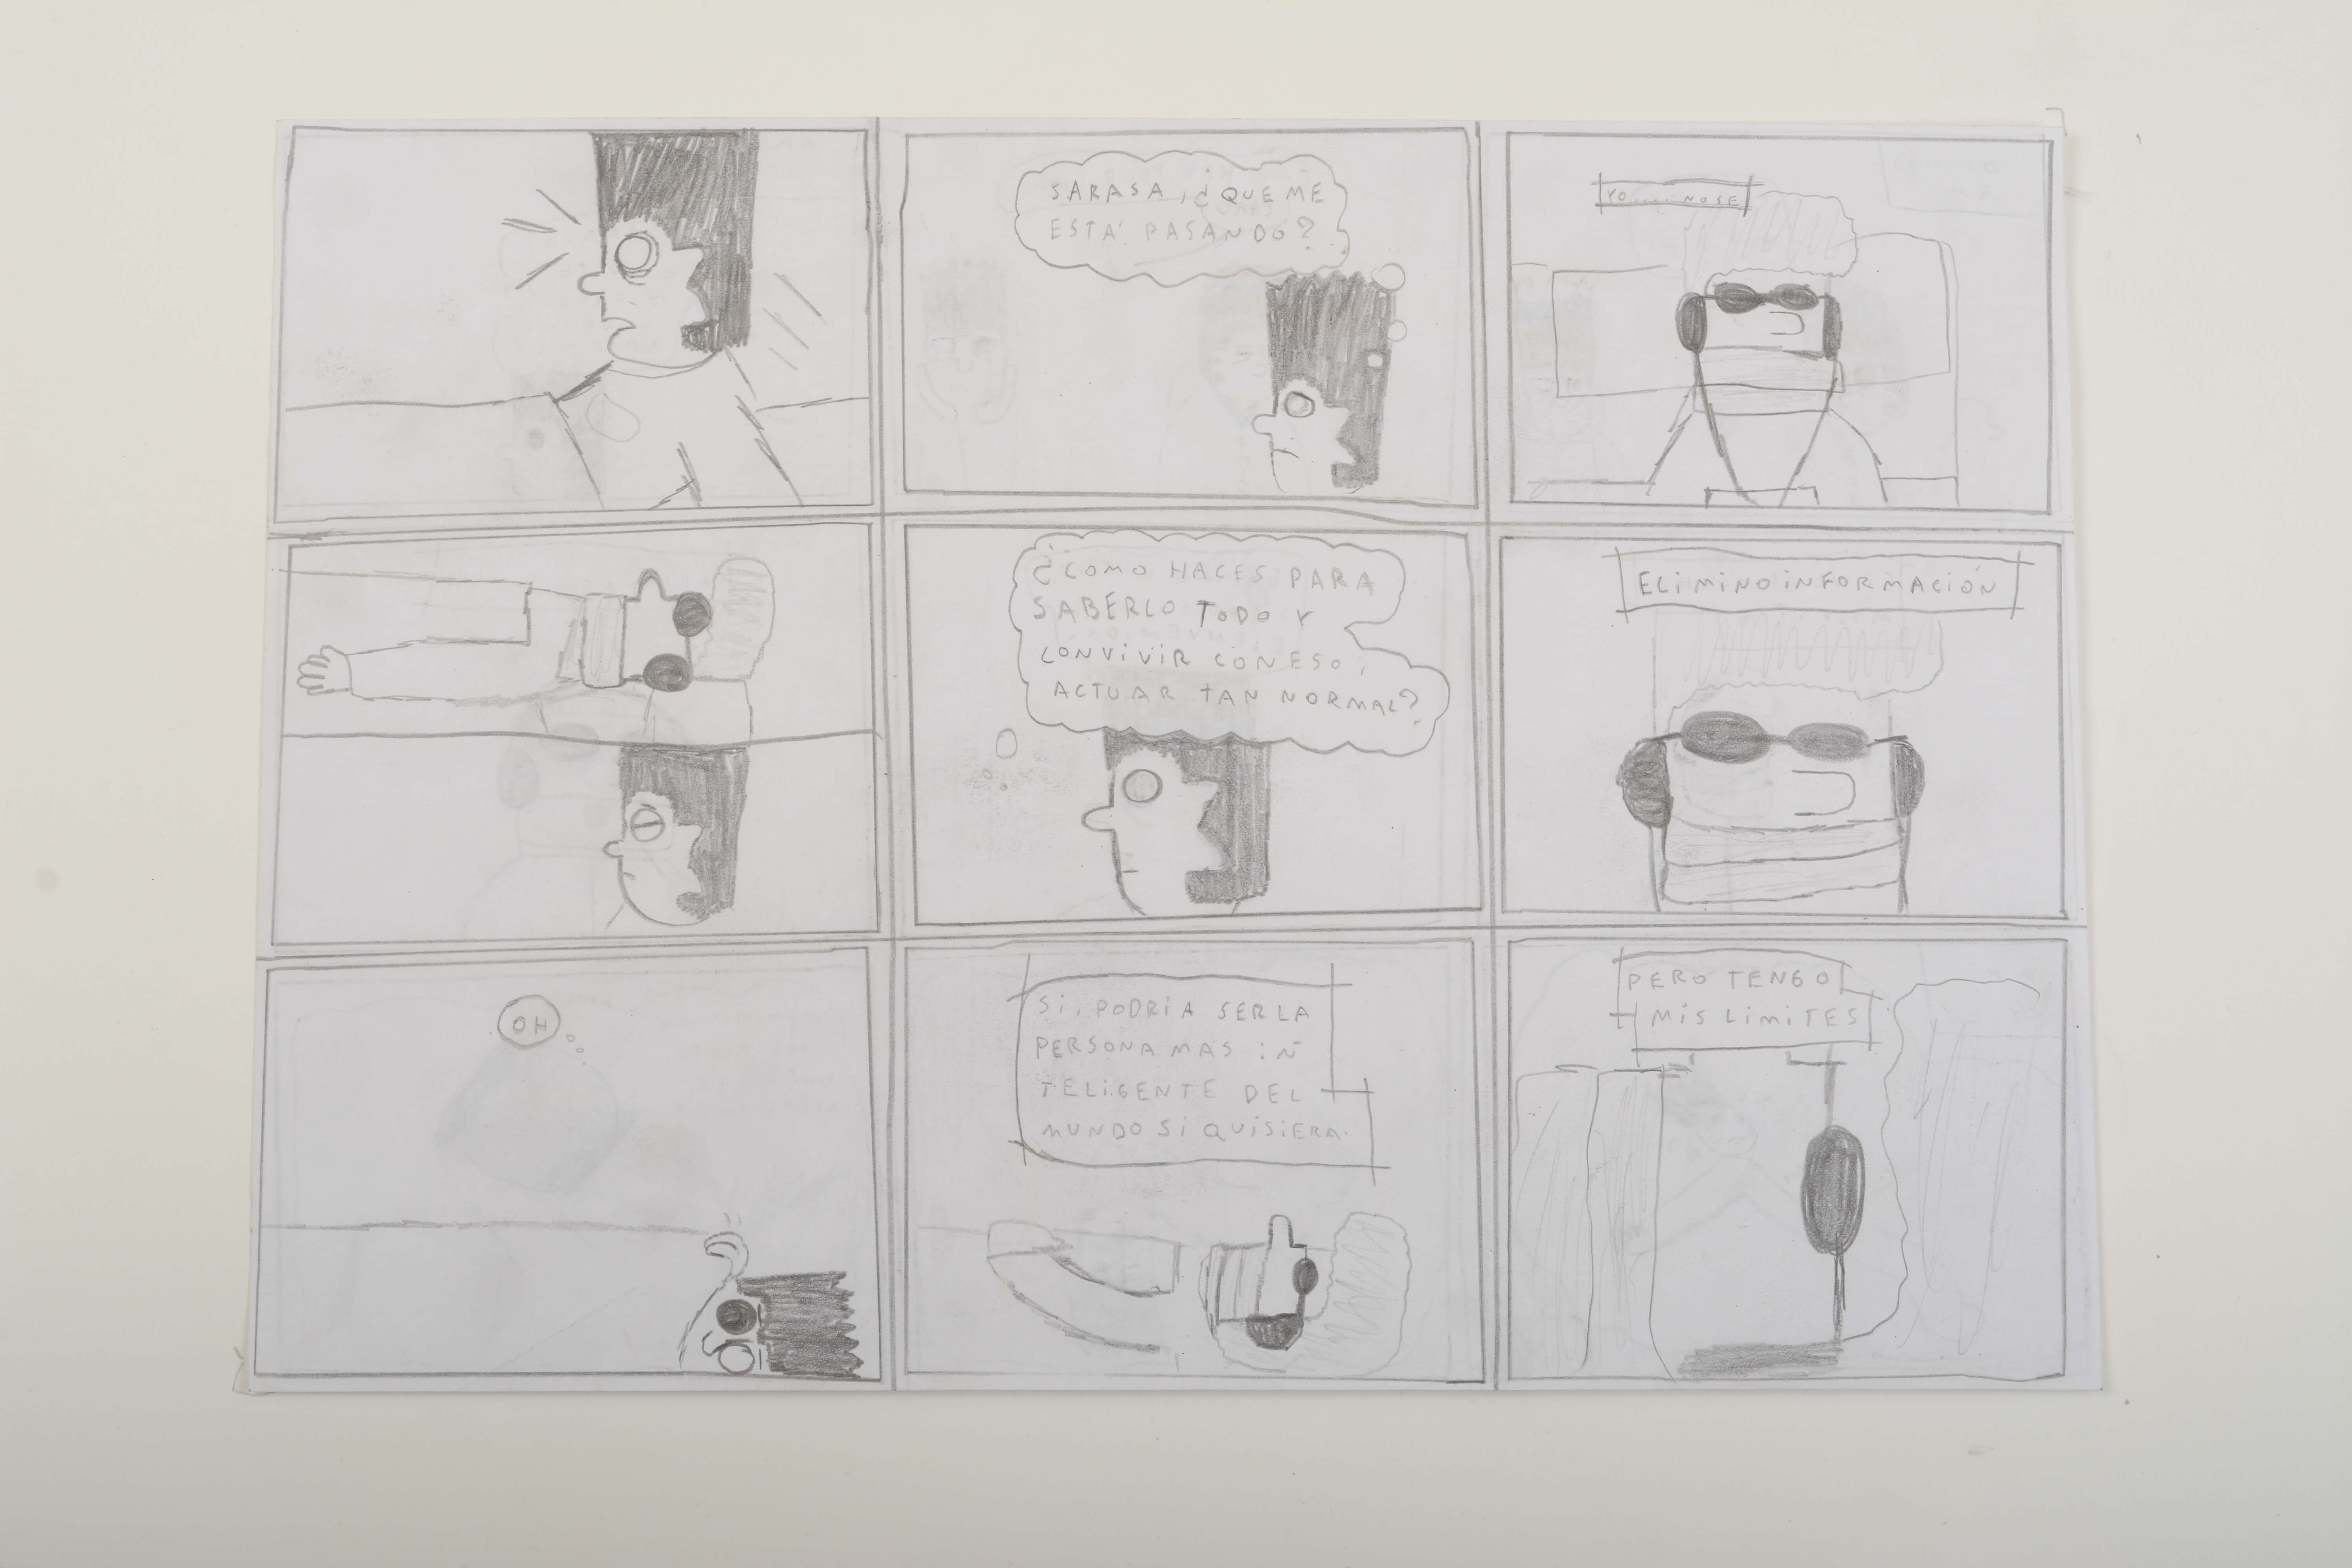 SARASA, ¿QUE ME
ESTÁ PASANDO?
YO.... NOSE
¿COMO HACES PARA
SABERLO TODO Y
CONVIVIR CON ESO,
ACTUAR TAN NORMAL?
ELIMINO INFORMACIÓN
OH
SI, PODRIA SER LA
PERSONA MAS IN
TELIGENTE DEL
MUNDO SI QUISIERA.
PERO TENGO
MIS LIMITES